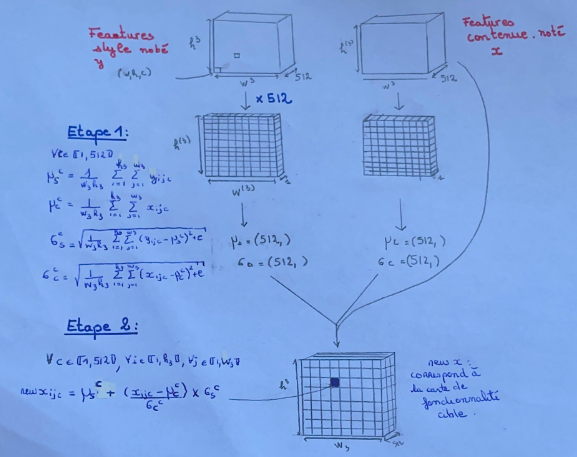 Features
style noté
y
(w,h,c)
h³
w³
512
Features
contenue. noté
x
h⁽³⁾
w³
512
x 512
h⁽³⁾
w⁽³⁾
Etape 1:
∀c ∈ ⟦1, 512⟧
μₛᶜ = 1/(w₃h₃) Σᵢ₌₁^h₃ Σⱼ₌₁^w₃ yᵢⱼc
μcᶜ = 1/(w₃h₃) Σᵢ₌₁^h₃ Σⱼ₌₁^w₃ xᵢⱼc
σₛᶜ = √(1/(w₃h₃) Σᵢ₌₁^h₃ Σⱼ₌₁^w₃ (yᵢⱼc - μₛᶜ)² + e)
σcᶜ = √(1/(w₃h₃) Σᵢ₌₁^h₃ Σⱼ₌₁^w₃ (xᵢⱼc - μcᶜ)² + e)
μₛ = (512, )
σₛ = (512, )
μc = (512, )
σc = (512, )
Etape 2:
∀c ∈ ⟦1, 512⟧, ∀i ∈ ⟦1, h₃⟧, ∀j ∈ ⟦1, w₃⟧
new xijc = μₛᶜ + (xijc - μcᶜ)/σcᶜ × σₛᶜ
w₃
new x:
correspond à
la carte de
fonctionnalité
cible.